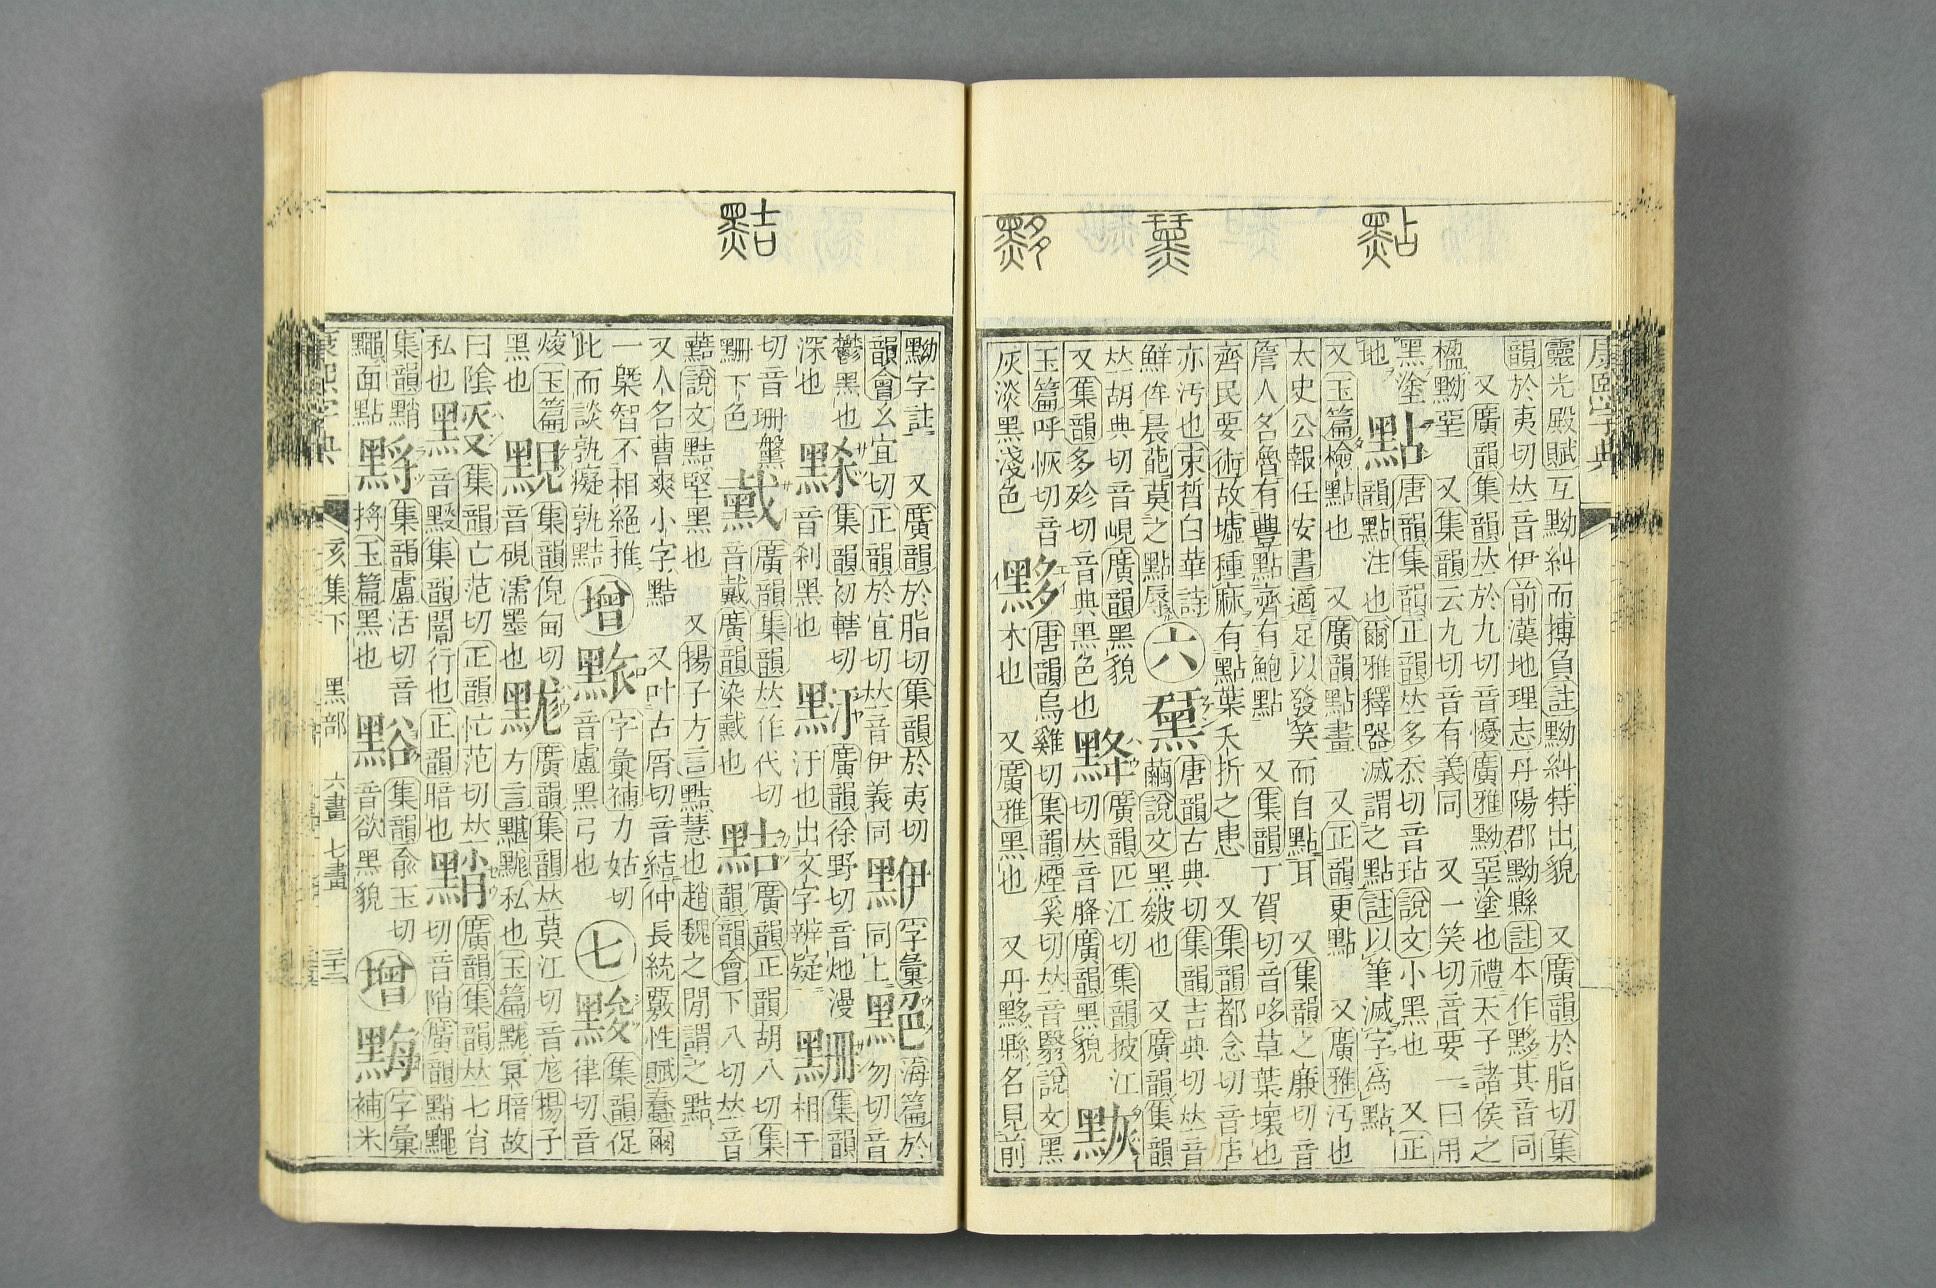 點
靈光殿賦互黝糾而搏負註黝糾特出貌 又廣韻於脂切集
韻於夷切𠀤音伊前漢地理志丹陽郡黝縣註本作黟其音同
又廣韻集韻𠀤於九切音懮廣雅黝堊塗也禮天子諸侯之
楹黝堊 又集韻云九切音有義同 又一笑切音要一曰用
黑塗
地 點 唐韻集韻正韻𠀤多忝切音玷說文小黑也 又正
韻點注也爾雅釋器滅謂之點註以筆滅字為點
又玉篇檢點也 又廣韻點畫 又正韻更點 又廣雅汚也
太史公報任安書適足以發笑而自點耳 又集韻之廉切音
詹人名魯有豐點齊有鮑點 又集韻丁賀切音哆草葉壞也
齊民要術故墟種麻有點葉夭折之患 又集韻都念切音店
亦汚也束皙白華詩
鮮侔晨葩莫之點辱 六 唐韻古典切集韻吉典切𠀤音
繭說文黑皴也 又廣韻集韻
𠀤胡典切音峴廣韻黑貌 廣韻匹江切集韻披江
又集韻多殄切音典黑色也 切𠀤音胮廣韻黑貌
玉篇呼恢切音
灰淡黑淺色 黟 唐韻烏雞切集韻煙奚切𠀤音翳說文黑
木也 又廣雅黑也 又丹黟縣名見前
康熙字典
黠
黝字註 又廣韻於脂切集韻於夷切
韻會幺宜切正韻於宜切𠀤音伊義同 字彙
同上 海篇於
勿切音
鬱黑也 集韻初轄切
深也 音刹黑也 廣韻徐野切音灺漫
汙也出文字辨疑 集韻
相干
切音珊䰉
下色 廣韻集韻𠀤作代切
音戴廣韻染黬也 黠 廣韻正韻胡八切集
韻韻會下八切𠀤音
說文黠堅黑也 又揚子方言黠慧也趙魏之閒謂之黠
又人名曹爽小字黠 又叶古屑切音結仲長統覈性賦蠢爾
一槩智不相絕推
此而談孰癡孰黠 增 字彙補力姑切
音盧黑弓也 七 集韻促
律切音
焌玉篇
黑也 集韻俔甸切
音硯濡墨也 廣韻集韻𠀤莫江切音厖楊子
方言私也玉篇冥暗故
曰陰
私也 集韻亡范切正韻忙范切𠀤
音㜝集韻闇行也正韻暗也 廣韻集韻𠀤七肖
切音陗廣韻
集韻
面點 集韻盧活切音
捋玉篇黑也 集韻俞玉切
音欲黑貌 增 字彙
補米
康熙字典 亥集下 黑部 六畫 七畫 三十二